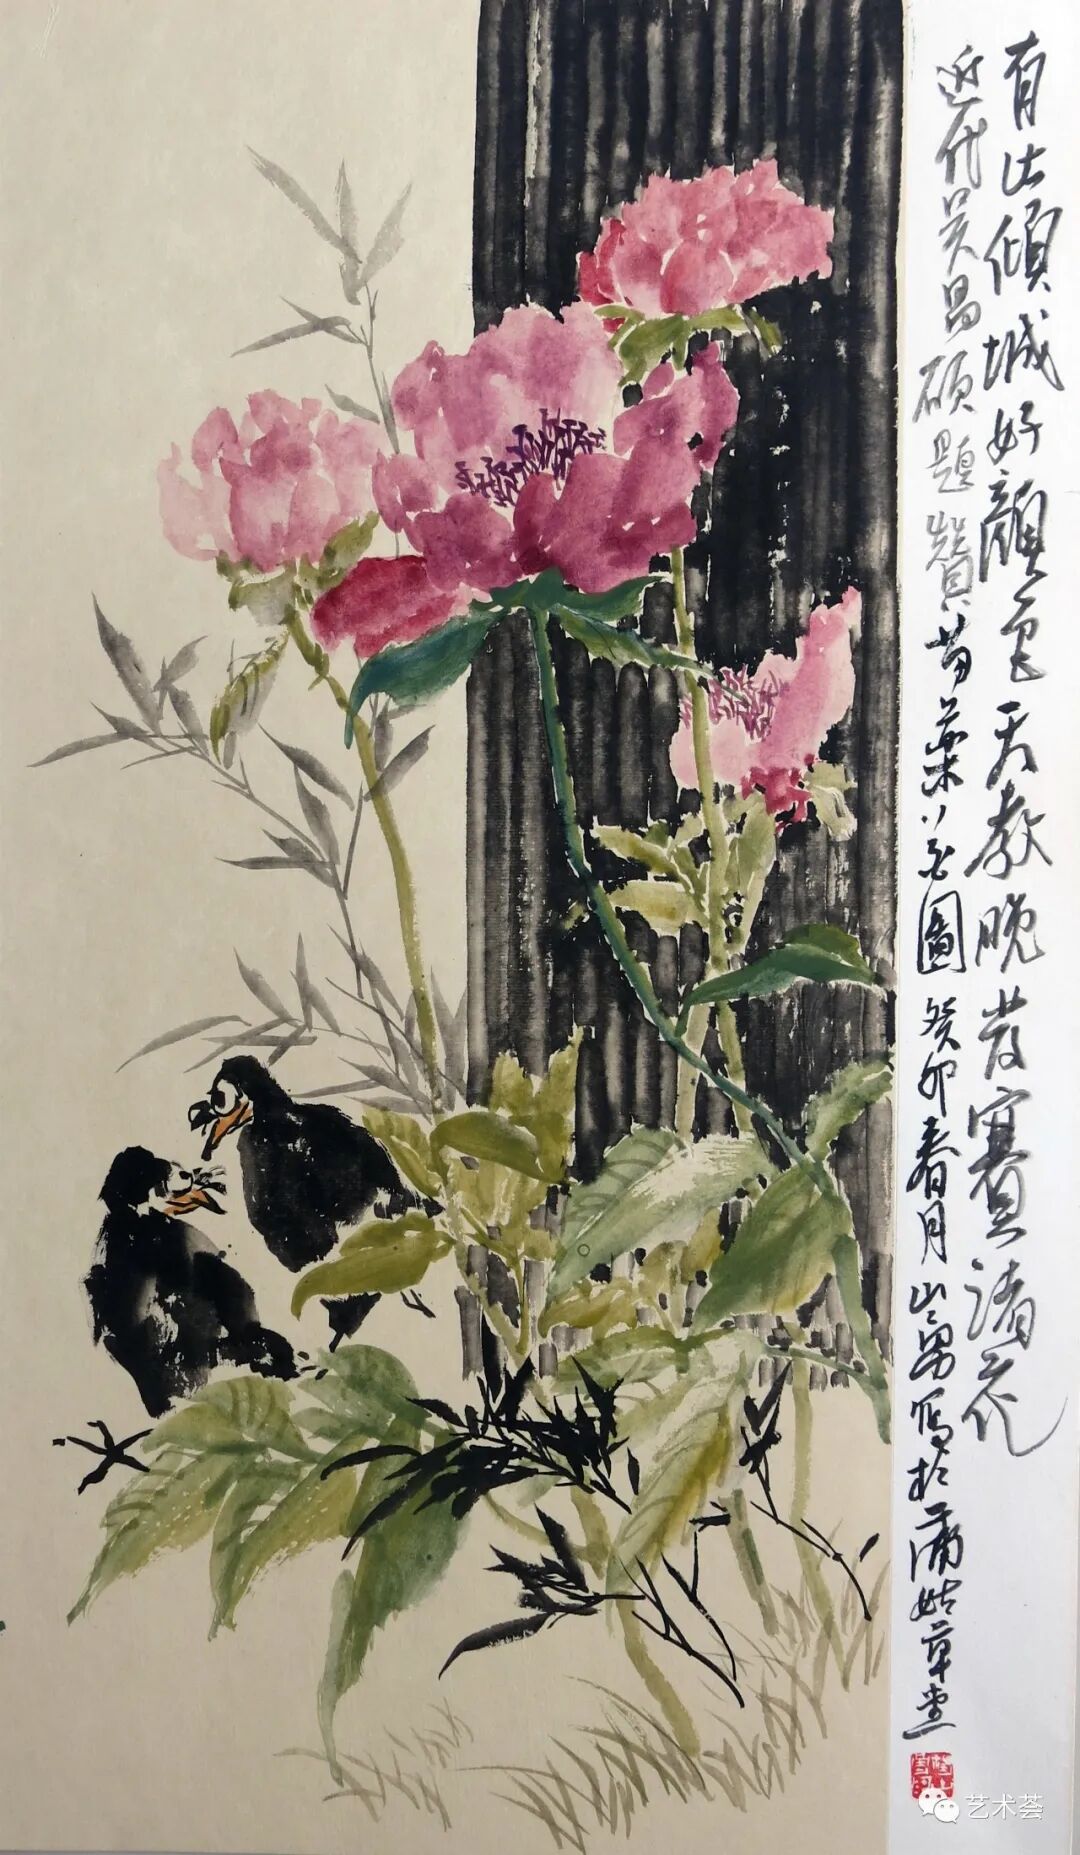 有此倾城好颜色天教晚发赛诸花
近代吴昌硕题赞芍药
图癸卯春月山
写于蒲姑草堂
艺术荟